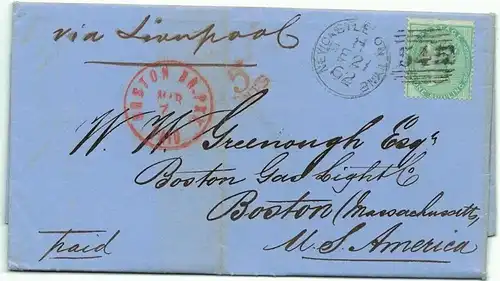 via Liverpool
NEWCASTLE-ON-TYNE
62
5
BOSTON BR. PKT
MAR
7
W. W. Greenough Esqr
Boston Gas Light Co
Boston (Massachusetts,
U. S. America
Paid